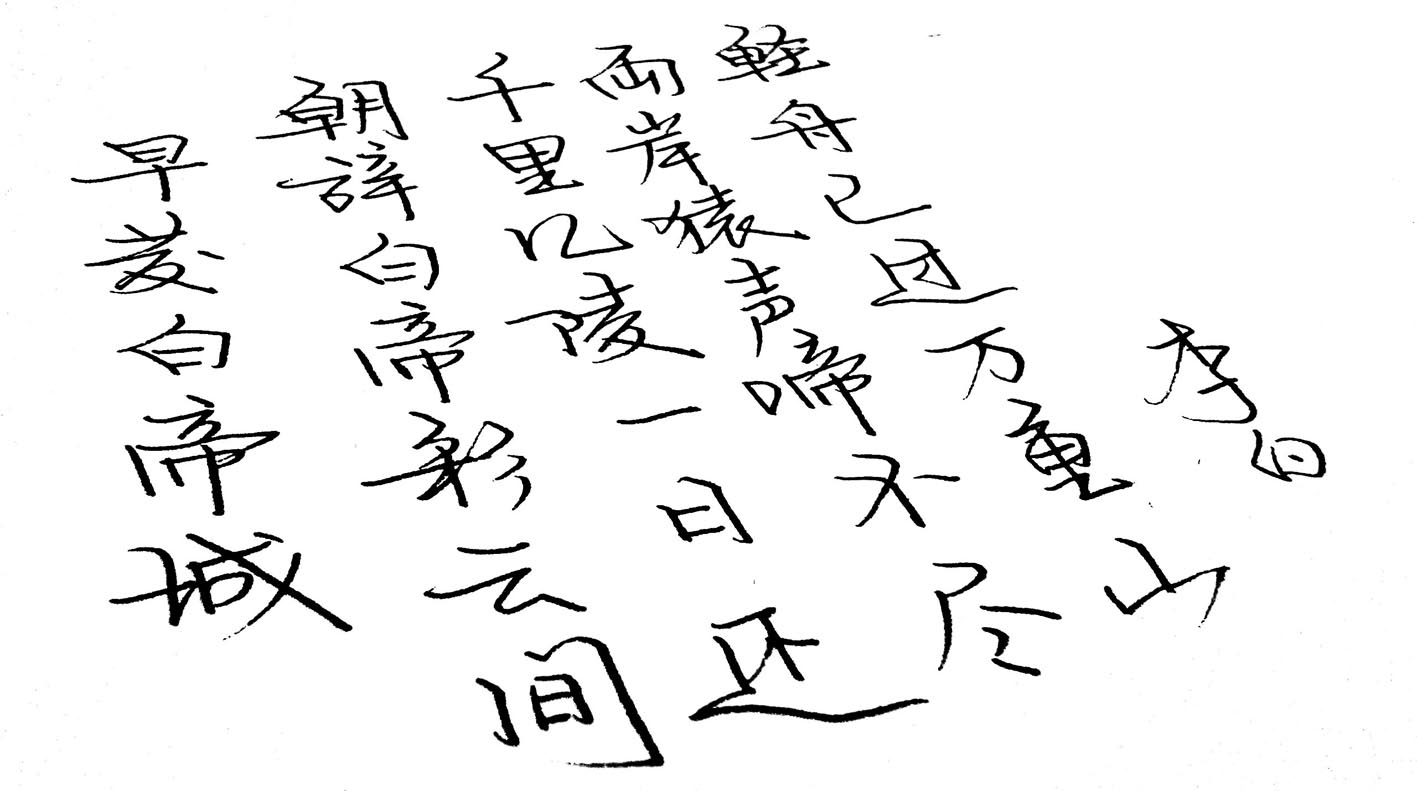 早发白帝城
朝辞白帝彩云间
千里江陵一日还
两岸猿声啼不尽
轻舟已过万重山
李白